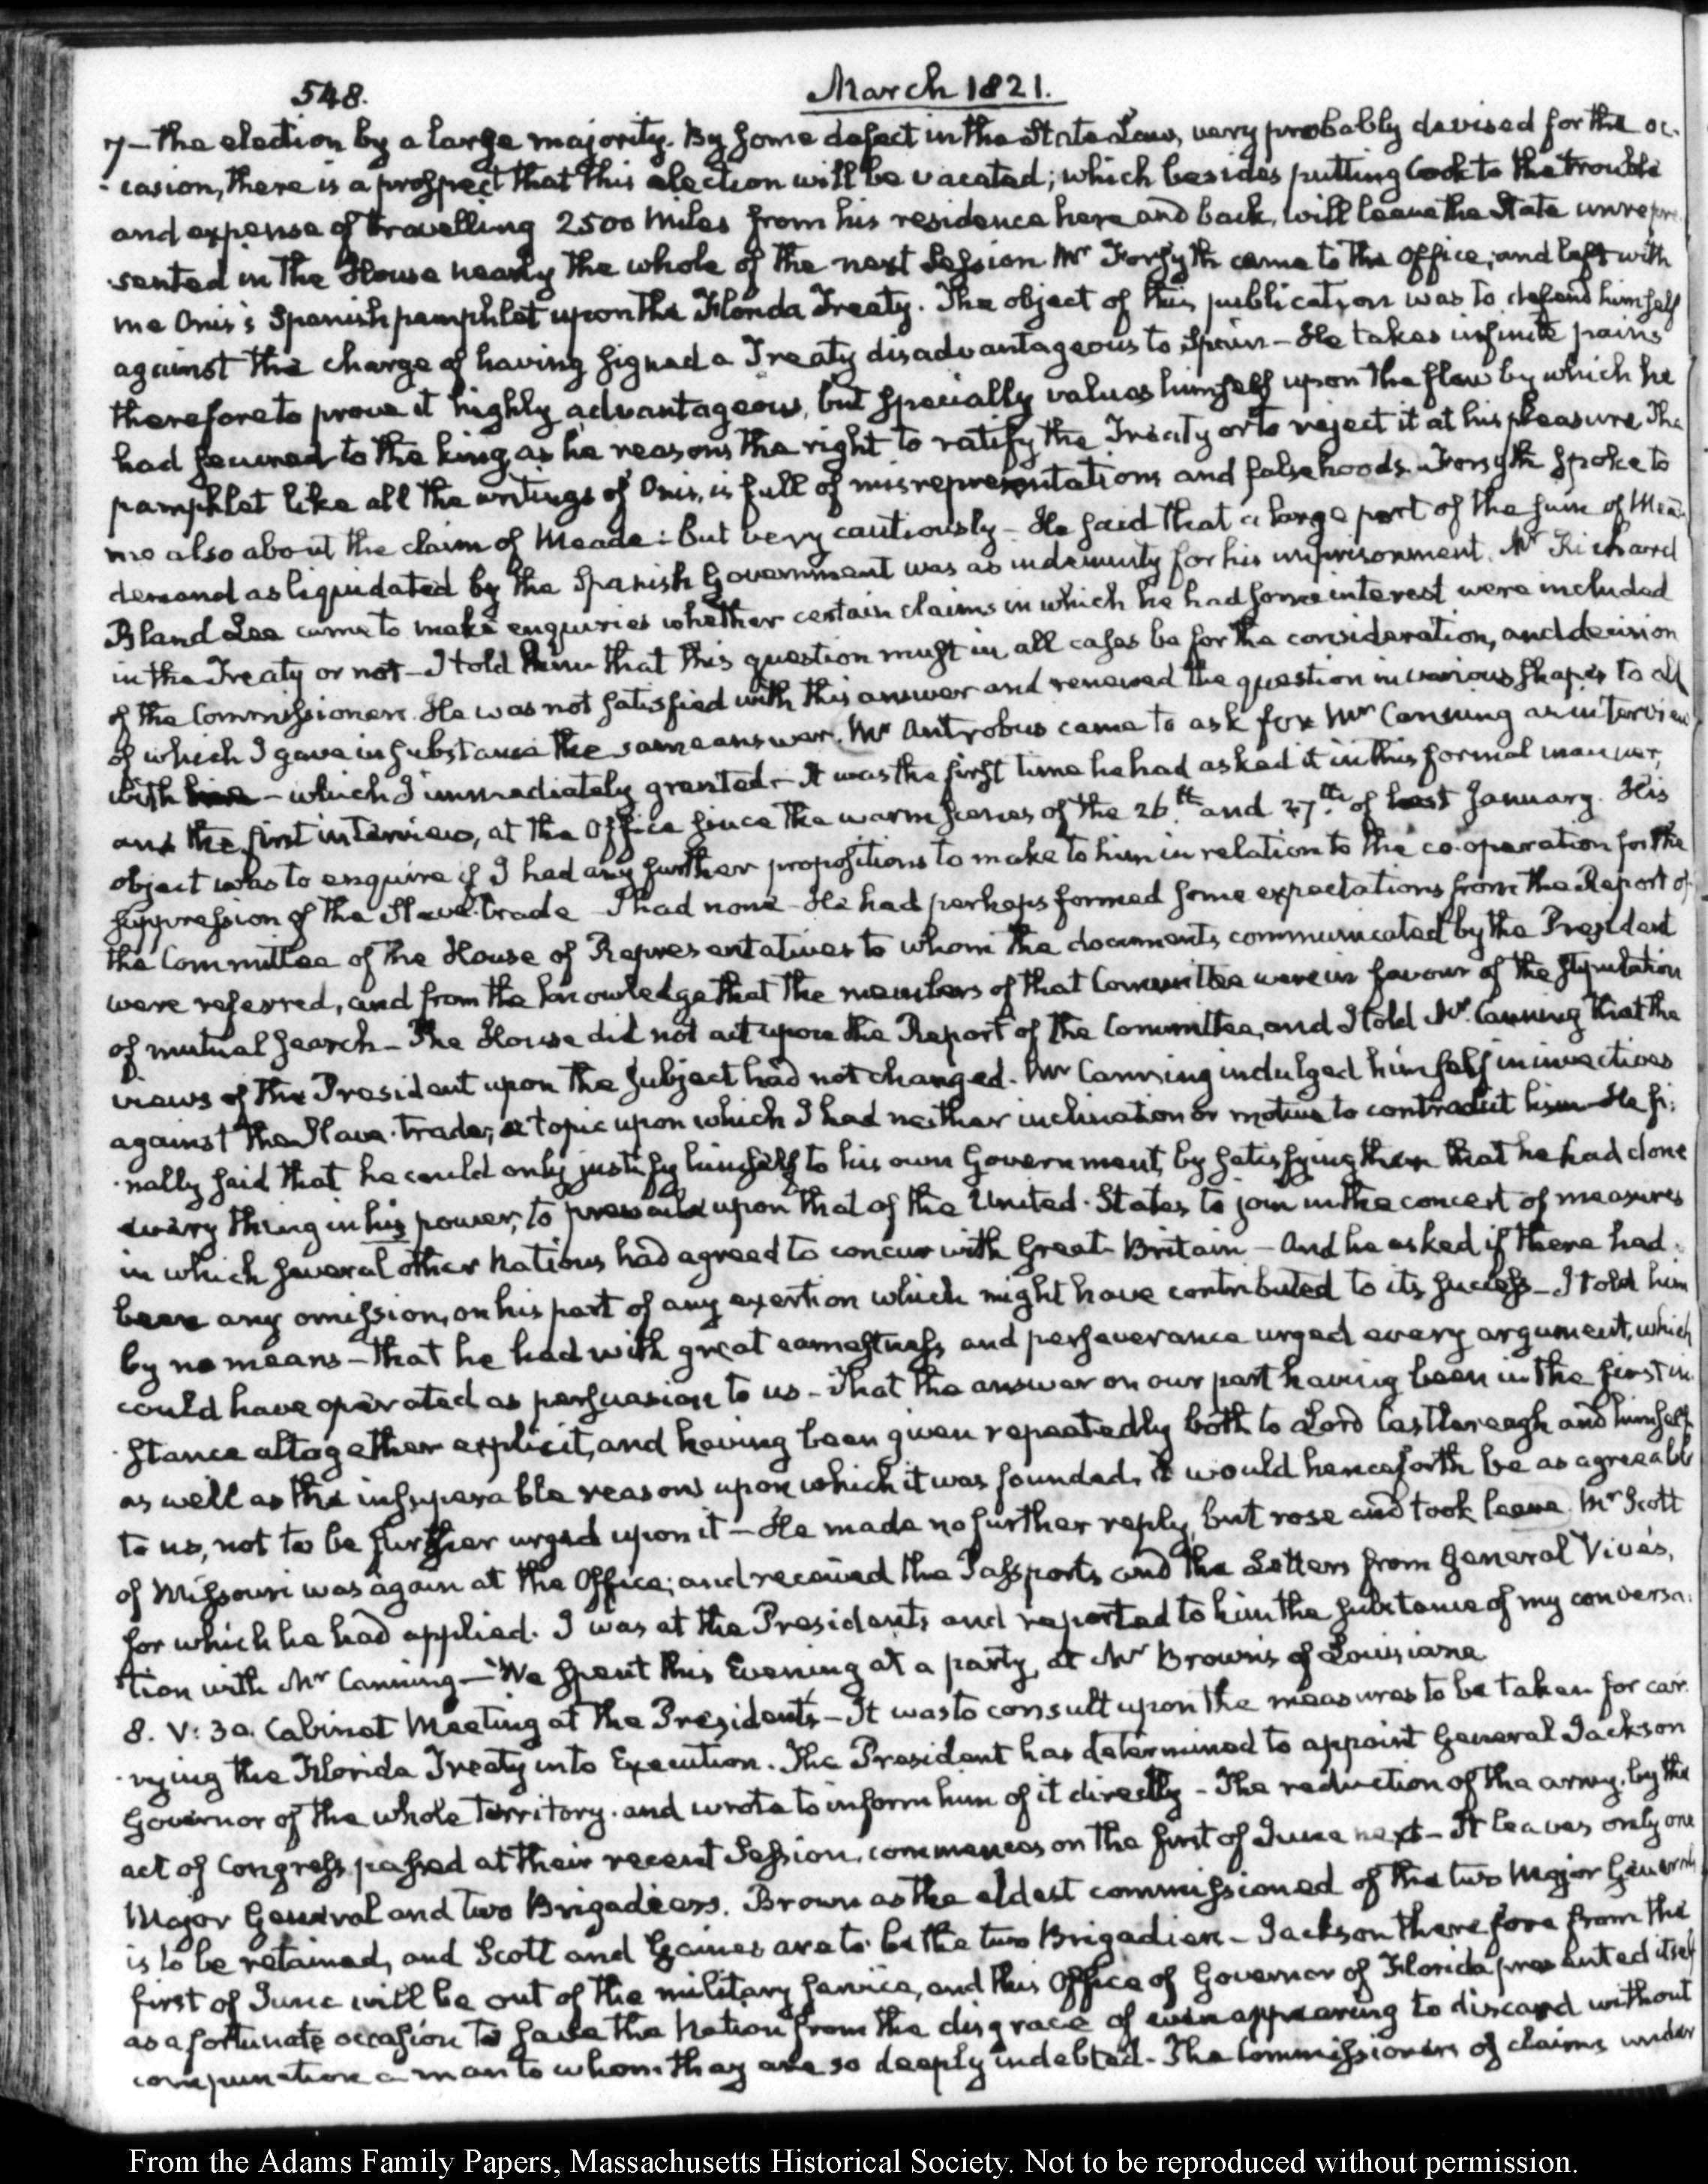 548.
March 1821.
7 — the election by a large majority. By some defect in the State Law, very probably devised for the oc-
-casion, there is a prospect that this election will be vacated; which besides putting Cook to the trouble
and expense of travelling 2500 Miles from his residence here and back, will leave the State unrepre-
-sented in the House nearly the whole of the next Session. Mr Forsyth came to the Office, and left with
me Onis's Spanish pamphlet upon the Florida Treaty. The object of this publication was to defend himself
against the charge of having signed a Treaty disadvantageous to Spain — He takes infinite pains
therefore to prove it highly advantageous, but specially values himself upon the flaw by which he
had secured to the king, as he reasons the right to ratify the Treaty or to reject it at his pleasure. The
pamphlet like all the writings of Onis, is full of misrepresentations and falsehoods. Forsyth spoke to
me also about the claim of Meade: but very cautiously — He said that a large part of the sum of Mea
demand as liquidated by the Spanish Government was as indemnity for his imprisonment. Mr Richard
Bland Lee came to make enquiries whether certain claims in which he had some interest were included
in the Treaty or not — I told him that this question must in all cases be for the consideration, and decision
of the Commissioners. He was not satisfied with this answer and renewed the question in various shapes to all
of which I gave in substance the same answer. Mr Antrobus came to ask for Mr Canning an interview
with — which I immediately granted — It was the first time he had asked it in this formal manner,
and the first interview, at the Office since the warm scenes of the 26.th and 27.th of last January. His
object was to enquire if I had any further propositions to make to him in relation to the co-operation for the
suppression of the Slave-trade — I had none — He had perhaps formed some expectations from the Report of
the Committee of the House of Representatives to whom the documents communicated by the President
were referred, and from the knowledge that the members of that Committee were in favour of the stipulation
of mutual search — The House did not act upon the Report of the Committee, and I told Mr. Canning that the
views of the President upon the subject had not changed. Mr Canning indulged himself in invectives
against the Slave-trade; a topic upon which I had neither inclination or motive to contradict him — He fi-
-nally said that he could only justify himself to his own Government, by satisfying them that he had done
every thing in his power, to prevail upon that of the United-States to join in the concert of measures
in which several other Nations had agreed to concur with Great-Britain — And he asked if there had
been any omission, on his part of any exertion which might have contributed to its success — I told him
by no means — that he had with great earnestness and perseverance urged every argument, which
could have operated as persuasion to us — That the answer on our part having been in the first in-
-stance altogether explicit, and having been given repeatedly both to Lord Castlereagh and himself
as well as the insuperable reasons upon which it was founded, it would henceforth be as agreeable
to us, not to be further urged upon it — He made no further reply, but rose and took leave. Mr Scott
of Missouri was again at the Office; and received the Passports and the Letters from General Vivés,
for which he had applied. I was at the President's and reported to him the substance of my conversa-
-tion with Mr Canning — We spent this Evening at a party, at Mr Brown's of Louisiana
8. V: 30. Cabinet Meeting at the President's — It was to consult upon the measures to be taken for car-
-rying the Florida Treaty into Execution. The President has determined to appoint General Jackson
Governor of the whole Territory. and wrote to inform him of it directly — The reduction of the army, by the
act of Congress, passed at their recent Session, commences on the first of June next — It leaves only one
Major General and two Brigadiers. Brown as the eldest commissioned of the two Major Generals
is to be retained, and Scott and Gaines are to be the two Brigadiers — Jackson therefore from the
first of June will be out of the military service, and this Office of Governor of Florida presented itself
as a fortunate occasion to save the Nation from the disgrace of even appearing to discard without
compunction a man to whom they are so deeply indebted. The Commissioners of claims under
From the Adams Family Papers, Massachusetts Historical Society. Not to be reproduced without permission.